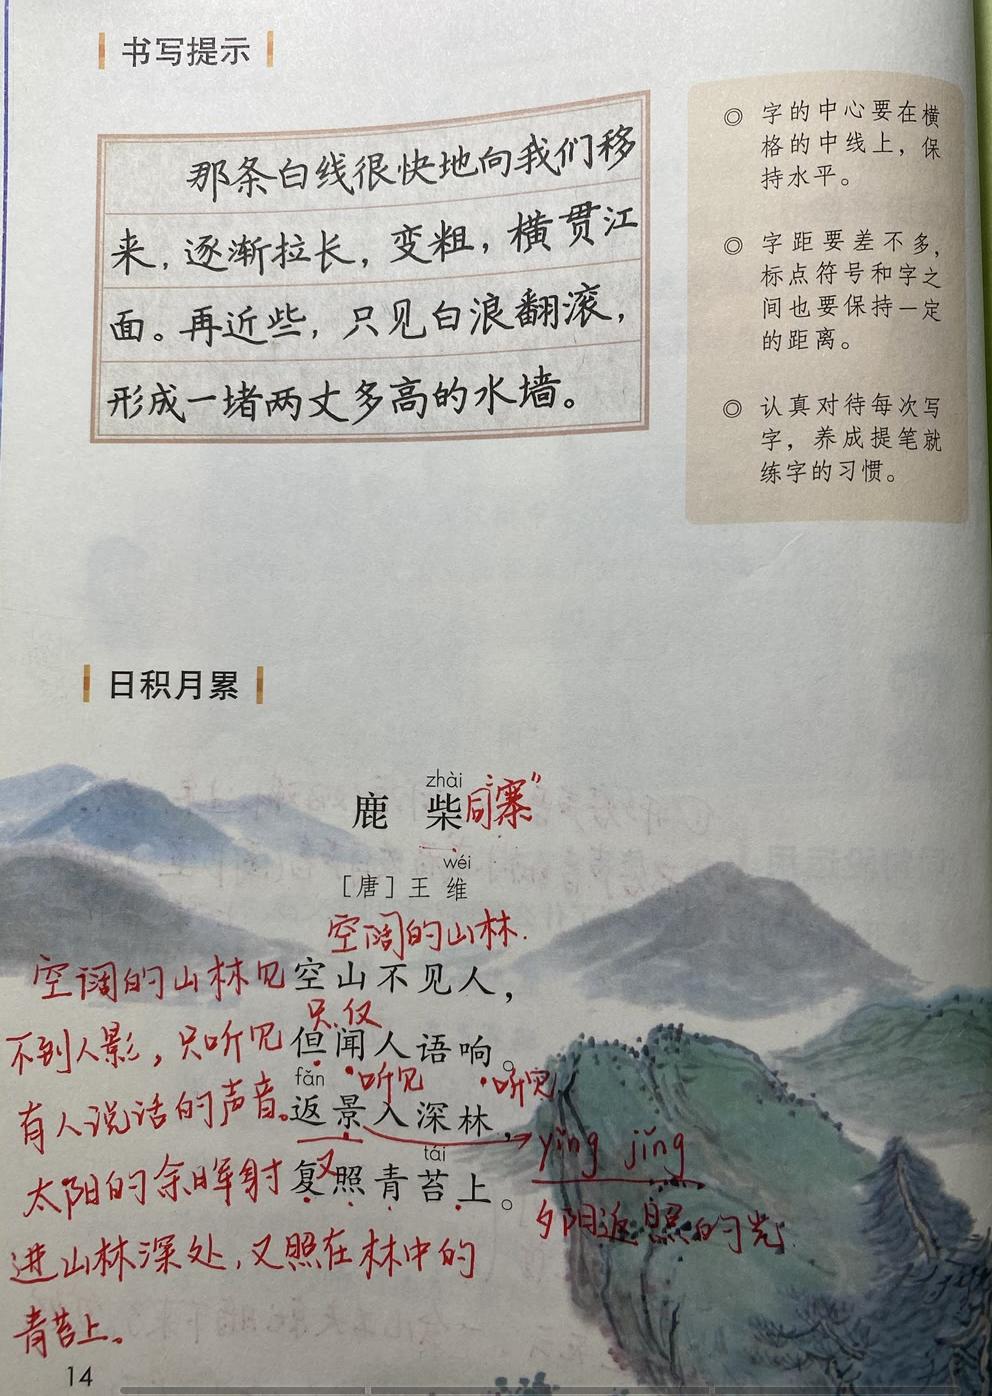 书写提示
那条白线很快地向我们移
来，逐渐拉长，变粗，横贯江
面。再近些，只见白浪翻滚，
形成一堵两丈多高的水墙。
◎ 字的中心要在横
格的中线上，保
持水平。
◎ 字距要差不多，
标点符号和字之
间也要保持一定
的距离。
◎ 认真对待每次写
字，养成提笔就
练字的习惯。
日积月累
zhài
鹿柴 同“寨”
wéi
［唐］王维
空阔的山林.
空山不见人，
只仅
但闻人语响。
fǎn 听见 听见
返景入深林，
yǐng jǐng
tái
复照青苔上。
又
夕阳返照的光
空阔的山林见
不到人影，只听见
有人说话的声音。
太阳的余晖射
进山林深处，又照在林中的
青苔上。
14